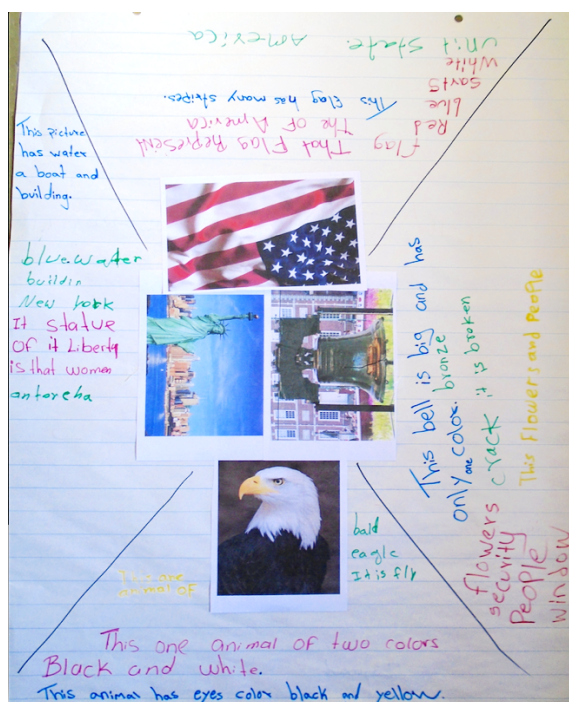 Unit State. America
White
Sarts
blue
Red
flag
This flag has many stripes.
The OF America
That Flag Represent
This picture
has water
a boat and
building.
blue water
buildin
New york
It statue
OF it Liberty
is that women
antorcha
This bell is big and has
only one color.
bronze
crack it is broken
This flowers and people
flowers
security
People
window
bald
eagle
It is fly
This are
animal OF
This one animal of two colors
Black and white.
This animal has eyes color black and yellow.